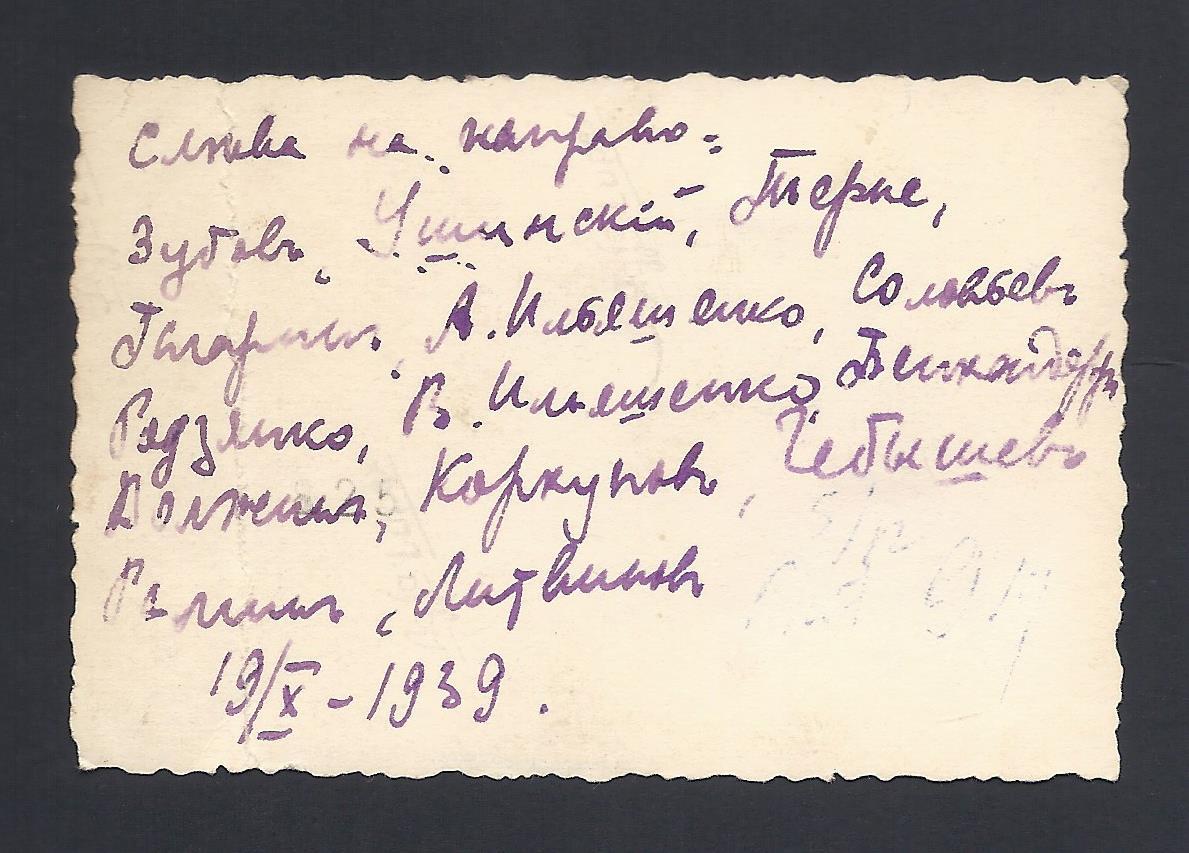 Слѣва на направо:
Зубовъ, Ушинскій, Терне,
Гагаринъ, А. Ильяшенко, Соловьевъ
Родзянко, В. Ильяшенко, Бенкендорфъ
Должинъ, Коркуновъ, Чебышевъ
Литвиновъ
19/X – 1939.